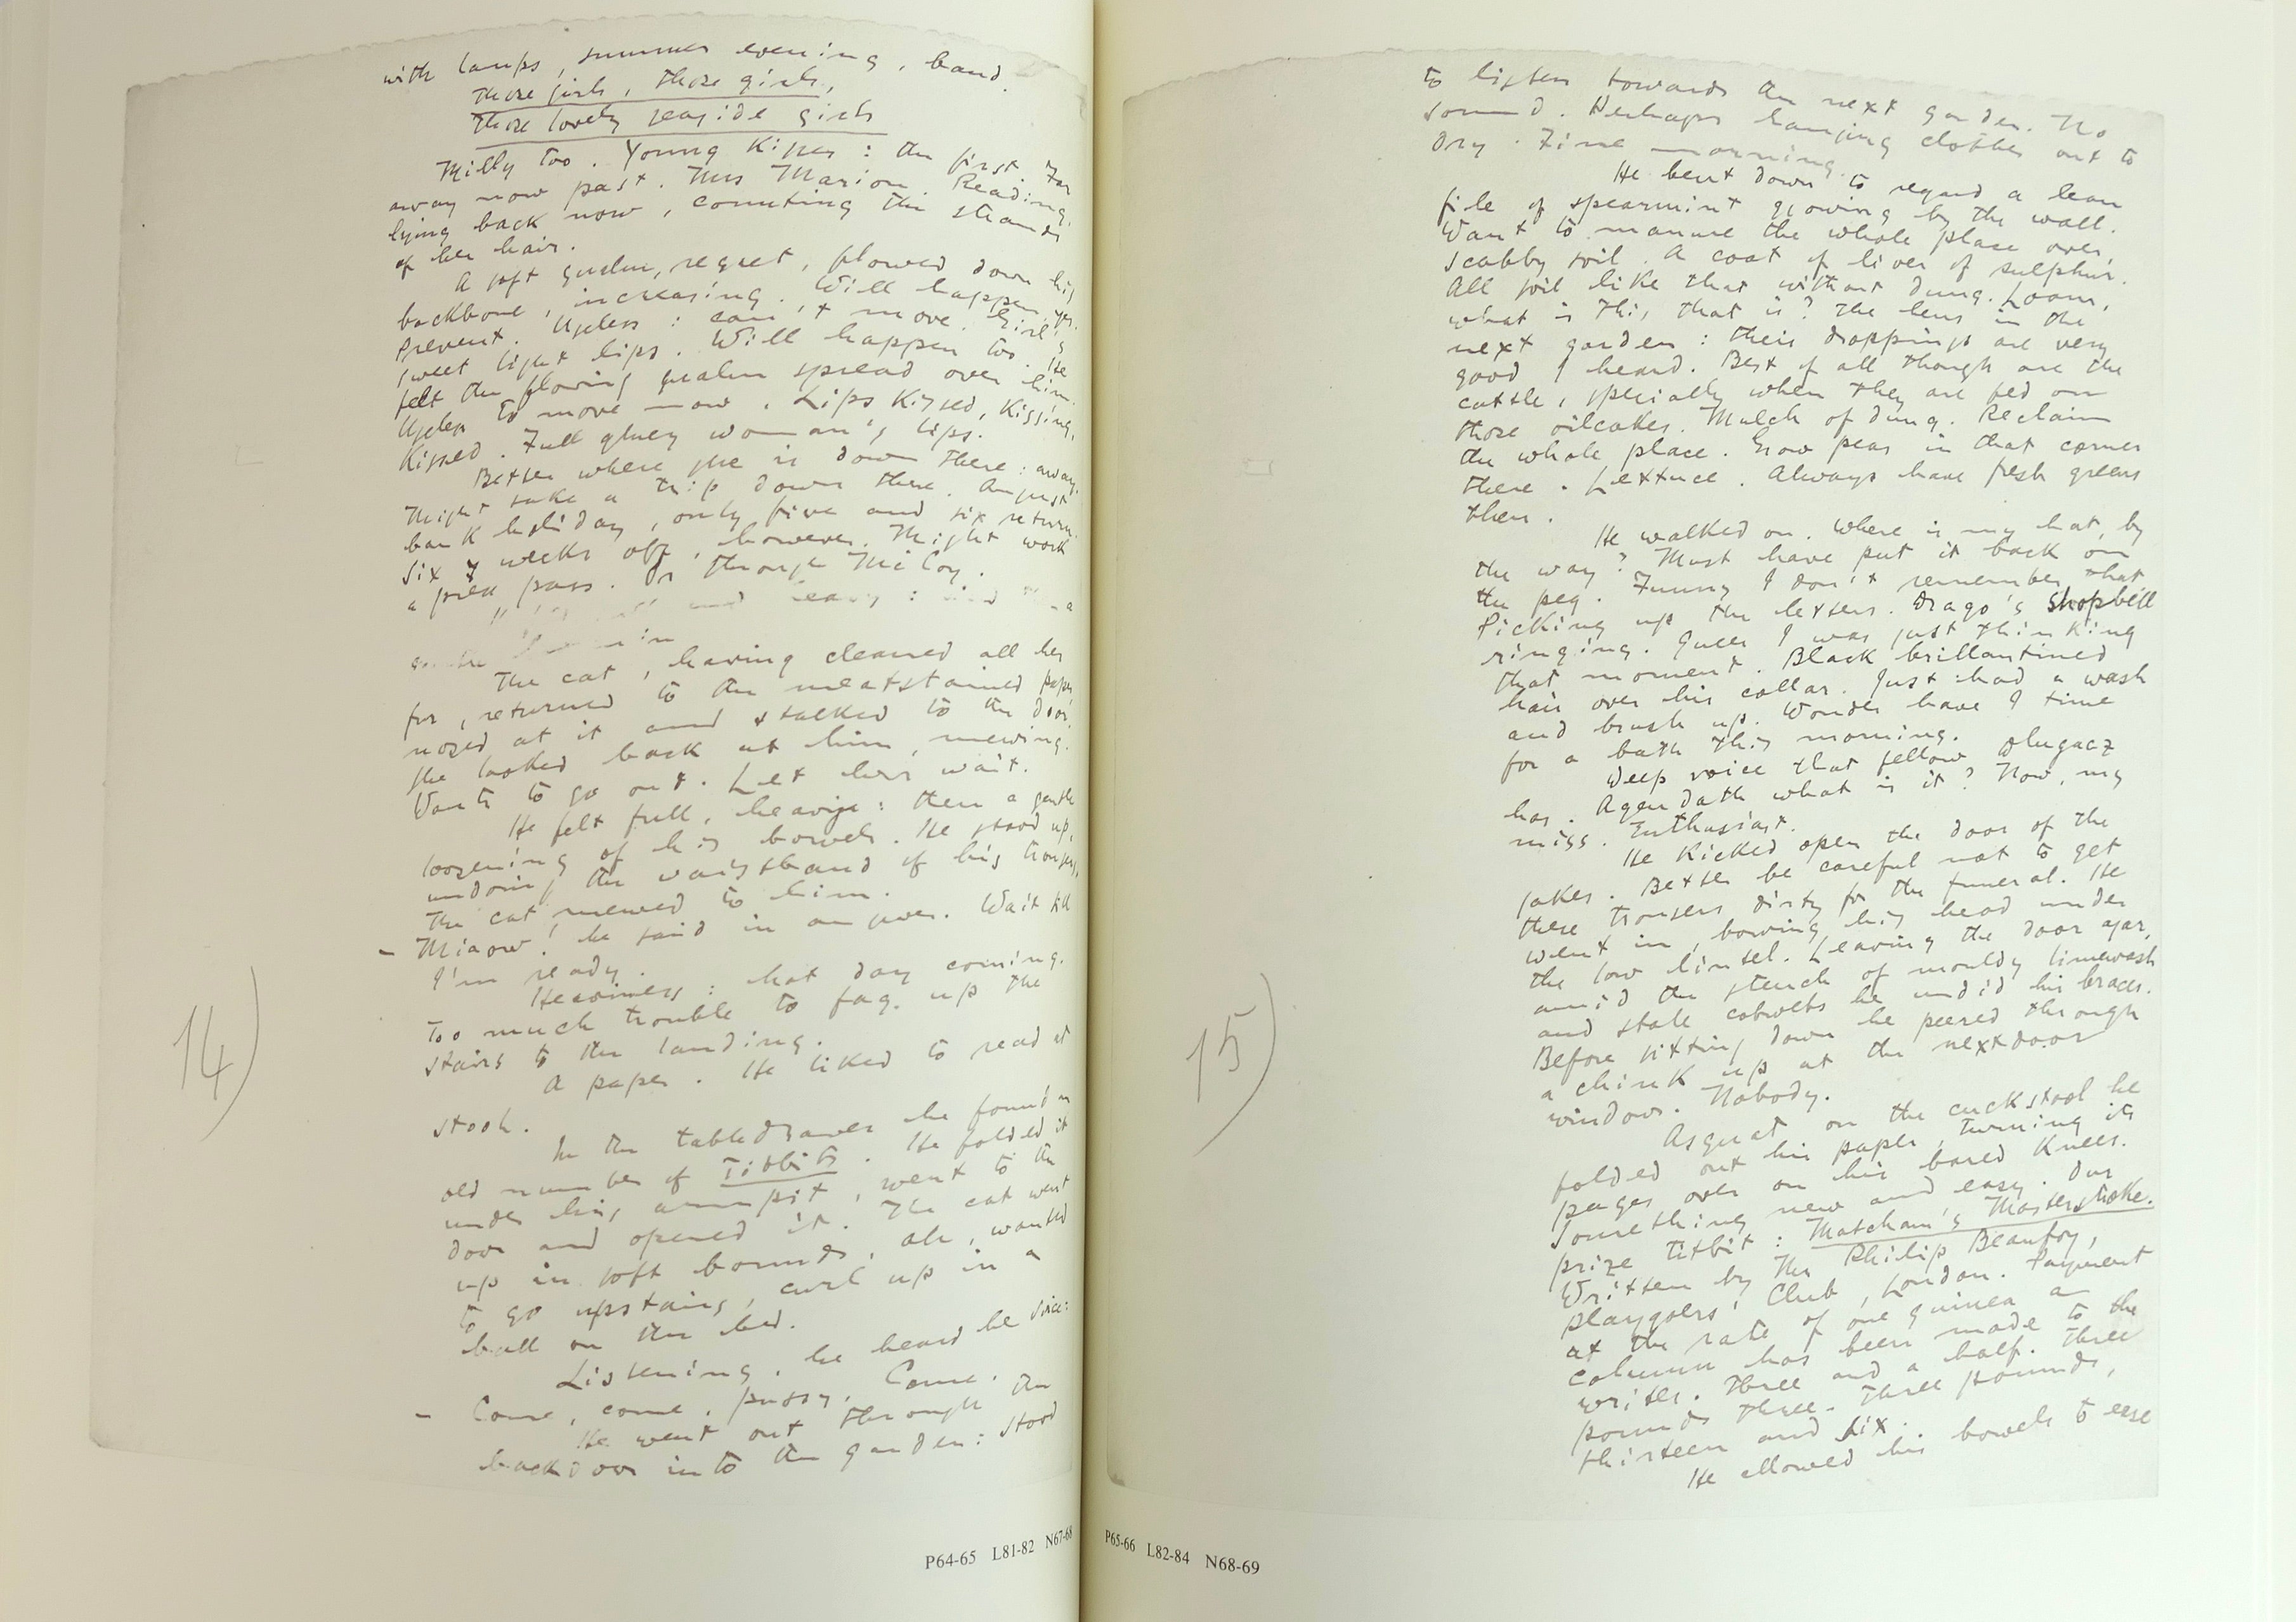 with lamps, summer evening, band.
Those girls, those girls,
Those lovely seaside girls
Milly too. Young kisses: the first. Far
away now past. Mrs Marion. Reading,
lying back now, counting the strands
of her hair.
A soft qualm, regret, flowed down his
backbone, increasing. Will happen, yes.
Prevent. Useless: can't move. Girl's
sweet light lips. Will happen too. He
felt the flowing qualm spread over him.
Useless to move now. Lips kissed, kissing,
kissed. Full gluey woman's lips.
Better where she is down there: away.
Might take a trip down there. August
bank holiday, only five and six return.
Six weeks off, however. Might work
a press pass. Or through McCoy.
The cat, having cleaned all her
fur, returned to the meatstained paper,
nosed at it and stalked to the door.
She looked back at him, mewing.
Wants to go out. Let her wait.
He felt full, heavy: then a gentle
loosening of his bowels. He stood up,
undoing the waistband of his trousers.
The cat mewed to him.
— Miaow! he said in answer. Wait till
I'm ready.
Heaviness: hot day coming.
Too much trouble to fag up the
stairs to the landing.
A paper. He liked to read at
stool.
In the tabledrawer he found an
old number of Titbits. He folded it
under his armpit, went to the
door and opened it. The cat went
up in soft bounds. Ah, wanted
to go upstairs, curl up in a
ball on the bed.
Listening, he heard he voice:
— Come, come, pussy. Come.
He went out through the
backdoor into the garden: stood
14)
P64-65 L81-82 N67-68
to listen towards the next garden. No
sound. Perhaps hanging clothes out to
dry. Fine morning.
He bent down to regard a lean
file of spearmint growing by the wall.
Want to manure the whole place over,
scabby soil. A coat of liver of sulphur.
All soil like that without dung. Loam,
what is this that is? The hens in the
next garden: their droppings are very
good I heard. Best of all though are the
cattle, specially when they are fed on
those oilcakes. Mulch of dung. Reclaim
the whole place. Grow peas in that corner
there. Lettuce. Always have fresh greens
then.
He walked on. Where is my hat, by
the way? Must have put it back on
the peg. Funny I don't remember that.
Picking up the letters. Drago's shopbell
ringing. Queer I was just thinking
that moment. Black brillantined
hair over his collar. Just had a wash
and brush up. Wonder have I time
for a bath this morning.
Deep voice that fellow Dlugacz
has. Agendath what is it? Now, my
miss. Enthusiast.
He kicked open the door of the
jakes. Better be careful not to get
these trousers dirty for the funeral. He
went in, bowing his head under
the low lintel. Leaving the door ajar,
amid the stench of mouldy limewash
and stale cobwebs he undid his braces.
Before sitting down he peered through
a chink up at the nextdoor
window. Nobody.
Asquat on the cuckstool he
folded out his paper, turning its
pages over on his bared knees.
Something new and easy. Our
prize titbit: Matcham's Masterstroke.
Written by Mr Philip Beaufoy,
playgoers' Club, London. Payment
at the rate of one guinea a
column has been made to the
writer. Three and a half. Three
pounds three. Three pounds,
thirteen and six.
He allowed his bowels to ease
15)
P65-66 L82-84 N68-69